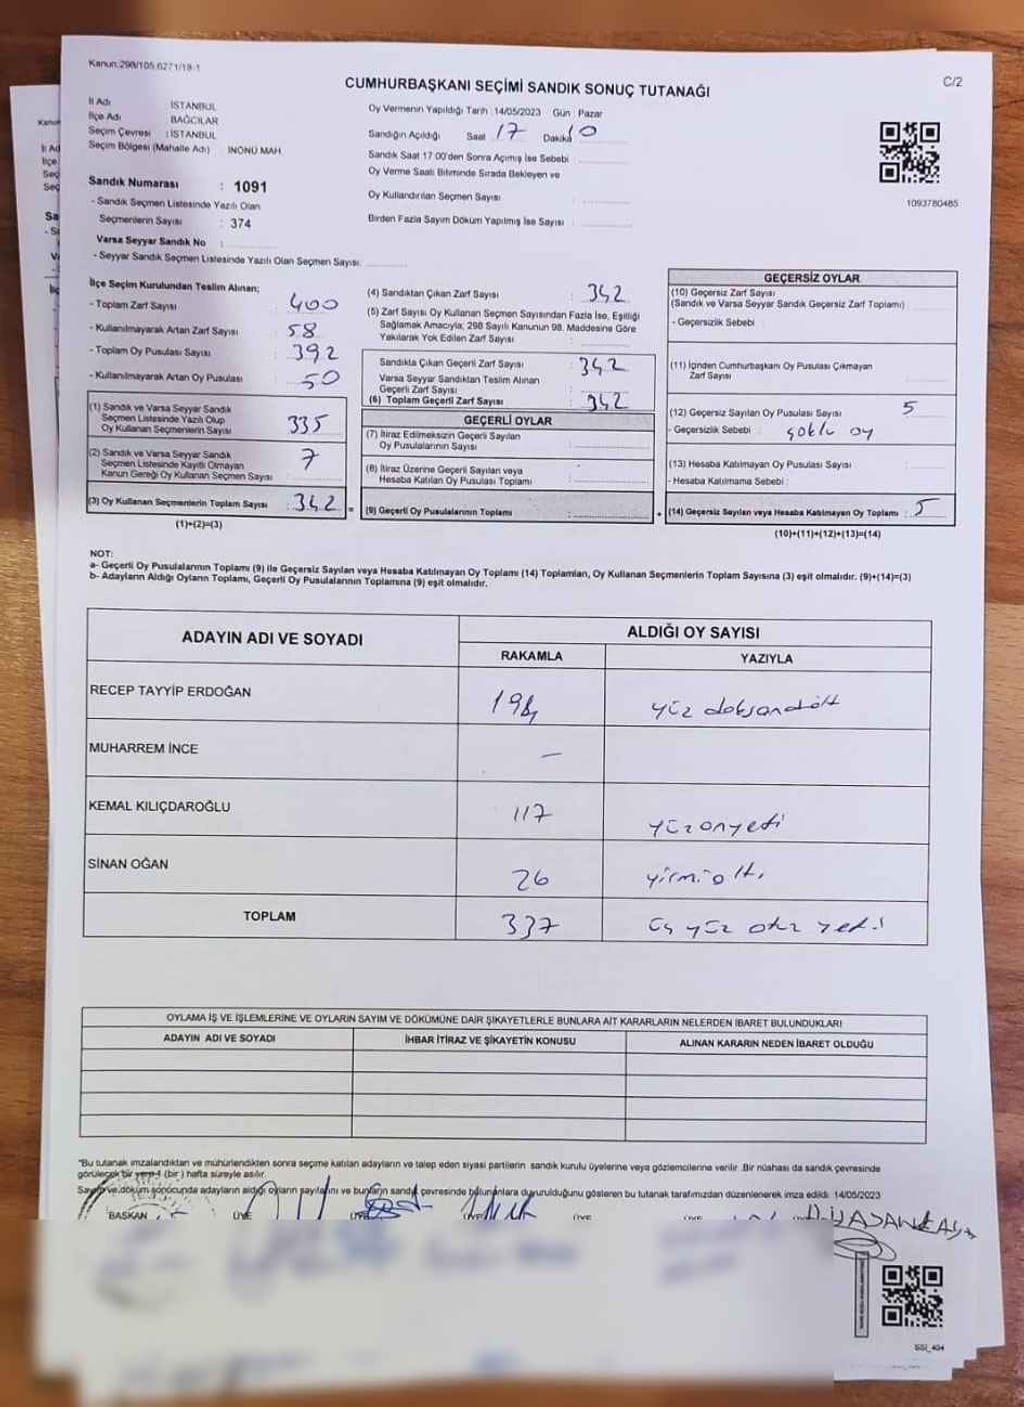 Kanun.298/105.6271/18-1
C/2
CUMHURBAŞKANI SEÇİMİ SANDIK SONUÇ TUTANAĞI
İl Adı İSTANBUL
İlçe Adı BAĞCILAR
Seçim Çevresi : İSTANBUL
Seçim Bölgesi (Mahalle Adı) İNÖNÜ MAH.
Sandık Numarası : 1091
- Sandık Seçmen Listesinde Yazılı Olan
Seçmenlerin Sayısı : 374
Varsa Seyyar Sandık No :
- Seyyar Sandık Seçmen Listesinde Yazılı Olan Seçmen Sayısı:
Oy Vermenin Yapıldığı Tarih : 14/05/2023 Gün : Pazar
Sandığın Açıldığı Saat 17 Dakika 10
Sandık Saat 17.00'den Sonra Açımış İse Sebebi
Oy Verme Saati Bitiminde Sırada Bekleyen ve
Oy Kullandırılan Seçmen Sayısı :
Birden Fazla Sayım Döküm Yapılmış İse Sayısı :
1093780485
İlçe Seçim Kurulundan Teslim Alınan;
- Toplam Zarf Sayısı : 400
- Kullanılmayarak Artan Zarf Sayısı : 58
- Toplam Oy Pusulası Sayısı : 392
- Kullanılmayarak Artan Oy Pusulası : 50
(1) Sandık ve Varsa Seyyar Sandık
Seçmen Listesinde Yazılı Olup
Oy Kullanan Seçmenlerin Sayısı : 335
(2) Sandık ve Varsa Seyyar Sandık
Seçmen Listesinde Kayıtlı Olmayan
Kanun Gereği Oy Kullanan Seçmen Sayısı : 7
(3) Oy Kullanan Seçmenlerin Toplam Sayısı : 342 =
(1)+(2)=(3)
(4) Sandıktan Çıkan Zarf Sayısı : 342
(5) Zarf Sayısı Oy Kullanan Seçmen Sayısından Fazla İse, Eşitliği
Sağlamak Amacıyla; 298 Sayılı Kanunun 98. Maddesine Göre
Yakılarak Yok Edilen Zarf Sayısı :
Sandıkta Çıkan Geçerli Zarf Sayısı : 342
Varsa Seyyar Sandıktan Teslim Alınan
Geçerli Zarf Sayısı :
(6) Toplam Geçerli Zarf Sayısı : 342
GEÇERLİ OYLAR
(7) İtiraz Edilmeksizin Geçerli Sayılan
Oy Pusulalarının Sayısı :
(8) İtiraz Üzerine Geçerli Sayılan veya
Hesaba Katılan Oy Pusulası Toplamı :
(9) Geçerli Oy Pusulalarının Toplamı : +
GEÇERSİZ OYLAR
(10) Geçersiz Zarf Sayısı
(Sandık ve Varsa Seyyar Sandık Geçersiz Zarf Toplamı)
- Geçersizlik Sebebi :
(11) İçinden Cumhurbaşkanı Oy Pusulası Çıkmayan
Zarf Sayısı
(12) Geçersiz Sayılan Oy Pusulası Sayısı 5
- Geçersizlik Sebebi : çoklu oy
(13) Hesaba Katılmayan Oy Pusulası Sayısı
- Hesaba Katılmama Sebebi :
(14) Geçersiz Sayılan veya Hesaba Katılmayan Oy Toplamı : 5
(10)+(11)+(12)+(13)=(14)
NOT:
a- Geçerli Oy Pusulalarının Toplamı (9) ile Geçersiz Sayılan veya Hesaba Katılmayan Oy Toplamı (14) Toplamları, Oy Kullanan Seçmenlerin Toplam Sayısına (3) eşit olmalıdır. (9)+(14)=(3)
b- Adayların Aldığı Oyların Toplamı, Geçerli Oy Pusulalarının Toplamına (9) eşit olmalıdır.
ADAYIN ADI VE SOYADI ALDIĞI OY SAYISI
RAKAMLA YAZIYLA
RECEP TAYYİP ERDOĞAN 194 yüz doksandört
MUHARREM İNCE –
KEMAL KILIÇDAROĞLU 117 yüzonyedi
SİNAN OĞAN 26 yirmialtı
TOPLAM 337 üç yüz otuz yedi
OYLAMA İŞ VE İŞLEMLERİNE VE OYLARIN SAYIM VE DÖKÜMÜNE DAİR ŞİKAYETLERLE BUNLARA AİT KARARLARIN NELERDEN İBARET BULUNDUKLARI
ADAYIN ADI VE SOYADI İHBAR İTİRAZ VE ŞİKAYETİN KONUSU ALINAN KARARIN NEDEN İBARET OLDUĞU
*Bu tutanak imzalandıktan ve mühürlendikten sonra seçime katılan adayların ve talep eden siyasi partilerin sandık kurulu üyelerine veya gözlemcilerine verilir. Bir nüshası da sandık çevresinde
görülecek bir yere 1 (bir) hafta süreyle asılır.
Sayım ve döküm sonucunda adayların aldığı oyların sayılarını ve bunların sandık çevresinde bulunanlara duyurulduğunu gösteren bu tutanak tarafımızdan düzenlenerek imza edildi. 14/05/2023
BAŞKAN ÜYE ÜYE ÜYE ÜYE
SSI_404